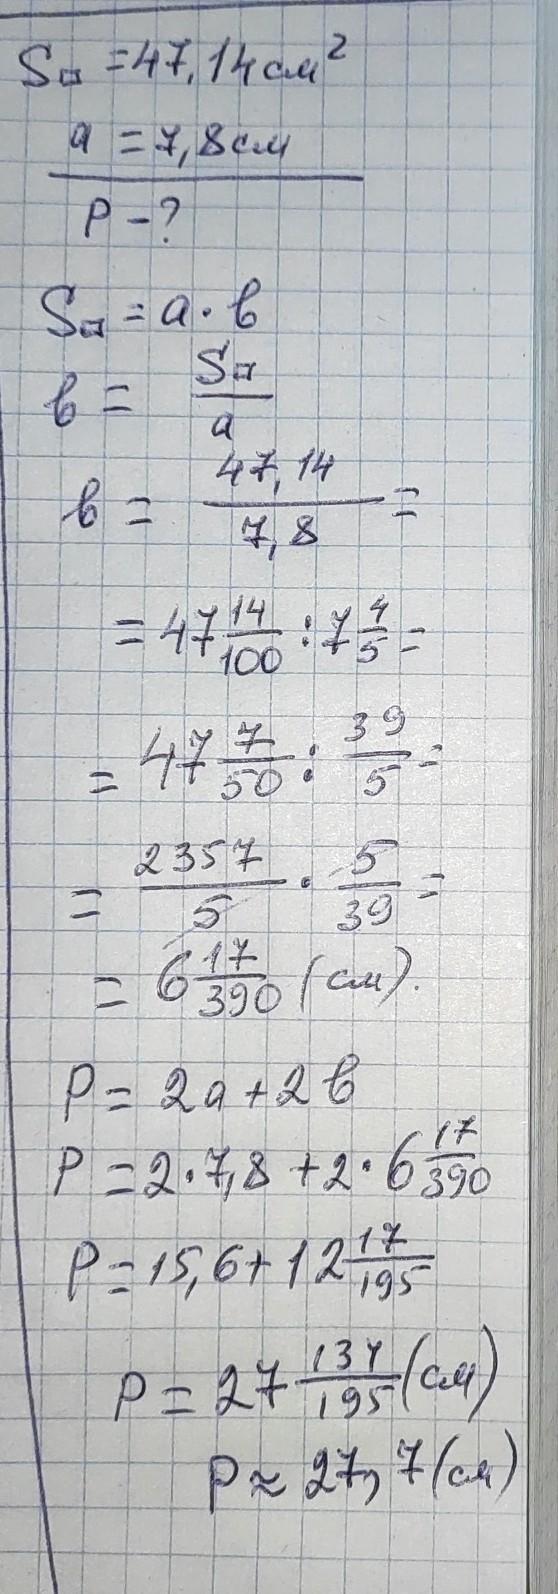 S▭ = 47,14 см²
a = 7,8 см
P - ?
S▭ = a · b
b = S▭/a
b = 47,14/7,8 =
= 47 14/100 : 7 4/5 =
= 47 7/50 : 39/5 =
= 2357/5 · 5/39 =
= 6 17/390 (см).
P = 2a + 2b
P = 2 · 7,8 + 2 · 6 17/390
P = 15,6 + 12 17/195
P = 27 134/195 (см)
P ≈ 27,7 (см)